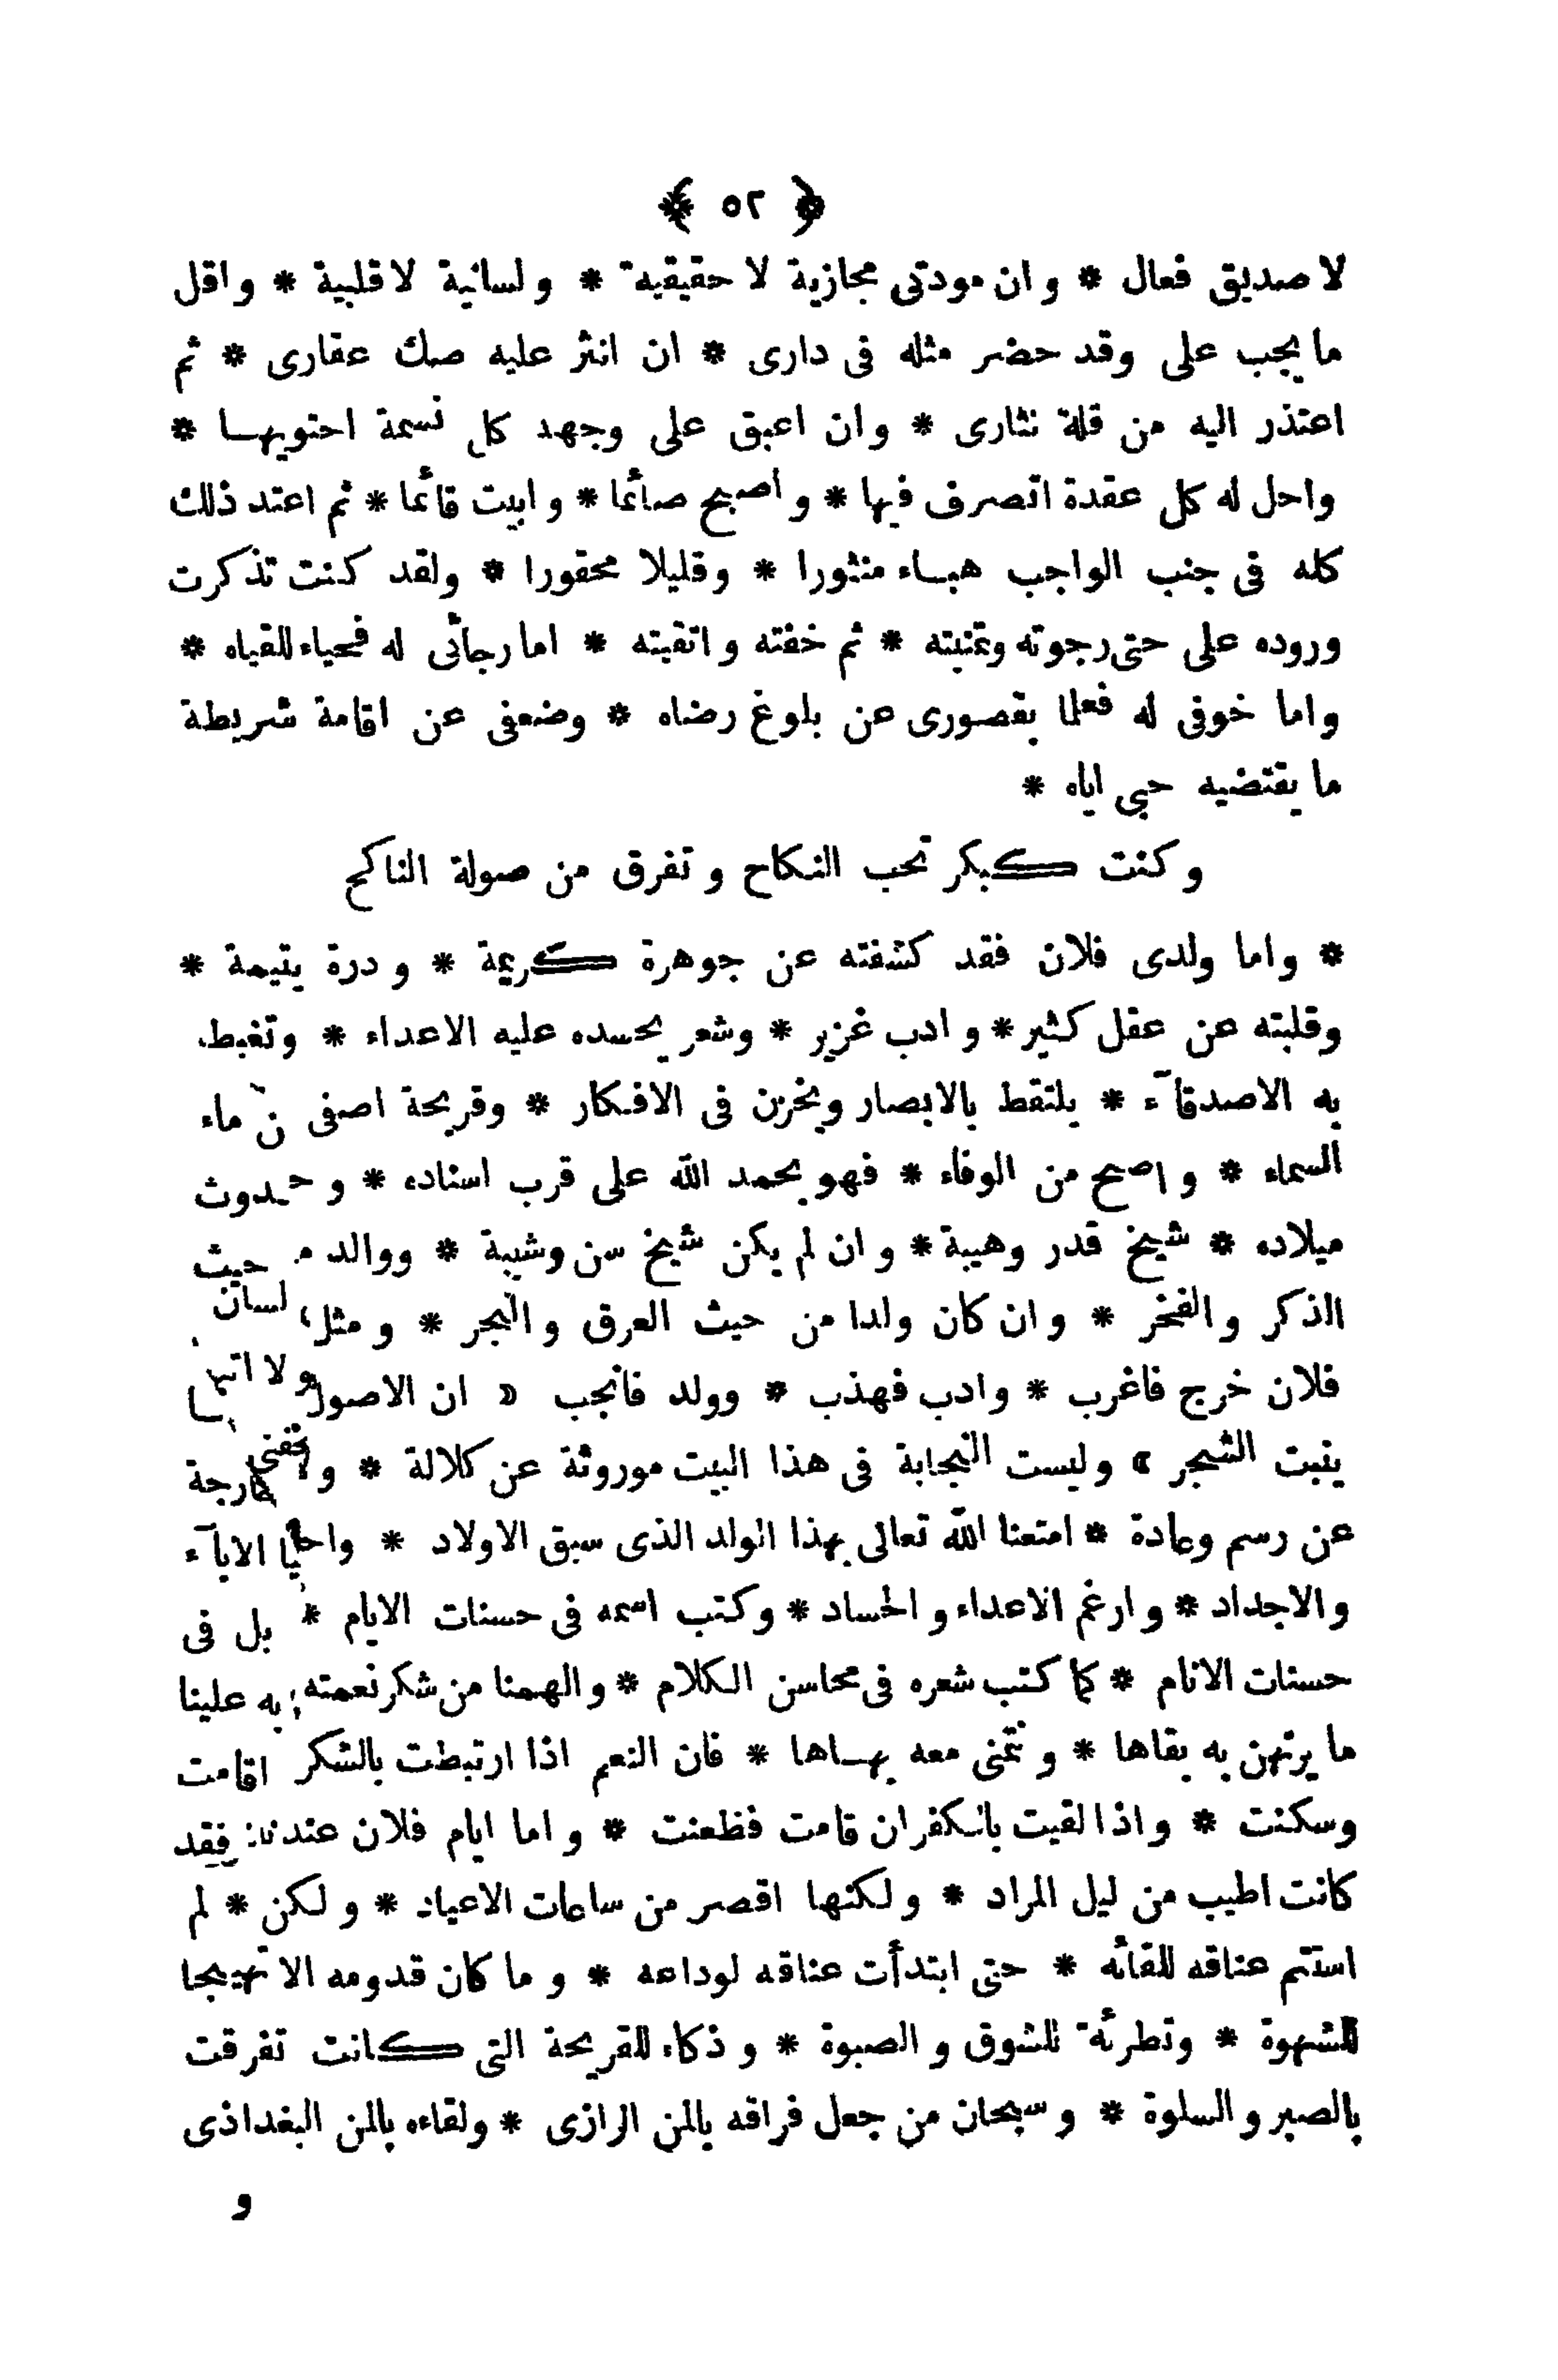 ﴿ ٥٢ ﴾
لا صديق فعال * وان مودتى مجازية لا حقيقية * ولسانية لا قلبية * واقل
ما يجب على وقد حضر مثله فى دارى * ان انثر عليه صك عقارى * ثم
اعتذر اليه من قلة نثارى * وان اعبق على وجهه كل نسمة احتويهـا *
واحل له كل عقدة اتصرف فيها * واصبح صائما * وابيت قائما * ثم اعتد ذلك
كله فى جنب الواجب هبـاء منثورا * وقليلا محقورا * ولقد كنت تذكرت
وروده على حتى رجوته وتمنيته * ثم خفته واتقيته * اما رجائى له فحياء للقياه *
واما خوفى له فعلما بقصورى عن بلوغ رضاه * وضعفى عن اقامة شريطة
ما يقتضيه حبى اياه *
وكنت كبكر تحب النكاح وتفرق من صولة الناكح
* واما ولدى فلان فقد كشفته عن جوهرة كريمة * ودرة يتيمة *
وقلبته عن عقل كثير * وادب غزير * وشعر يحسده عليه الاعداء * وتغبط
به الاصدقآء * يلتقط بالابصار ويخزن فى الافكار * وقريحة اصفى ن ماء
السماء * واصح من الوفاء * فهو بحمد الله على قرب اسناده * وحدوث
ميلاده * شيخ قدر وهيبة * وان لم يكن شيخ سن وشيبة * ووالد م حيث
الذكر والفخر * وان كان ولدا من حيث العرق والنجر * ومثل لسان
فلان خرج فاغرب * وادب فهذب * وولد فانجب « ان الاصول
ينبت الشجر » وليست النجابة فى هذا البيت موروثة عن كلالة * ولا خارجة
عن رسم وعادة * امتعنا الله تعالى بهذا الولد الذى سبق الاولاد * واحيا الابآء
والاجداد * وارغم الاعداء والحساد * وكتب اسمه فى حسنات الايام * بل فى
حسنات الانام * كما كتب شعره فى محاسن الكلام * والهمنا من شكر نعمته به علينا
ما يرتهن به بقاها * ونتمنى معه بهـاها * فان النعم اذا ارتبطت بالشكر اقامت
وسكنت * واذا لقيت بالكفران قامت فظعنت * واما ايام فلان عندنا فقد
كانت اطيب من ليل المراد * ولكنها اقصر من ساعات الاعياد * ولكن * لم
استتم عناقه للقائه * حتى ابتدأت عناقه لوداعه * وما كان قدومه الا تهييجا
للشهوة * وتطرئة للشوق والصبوة * وذكاء للقريحة التى كانت تفرقت
بالصبر والسلوة * وسبحان من جعل فراقه بالمن الرازى * ولقاءه بالمن البغداذى
و